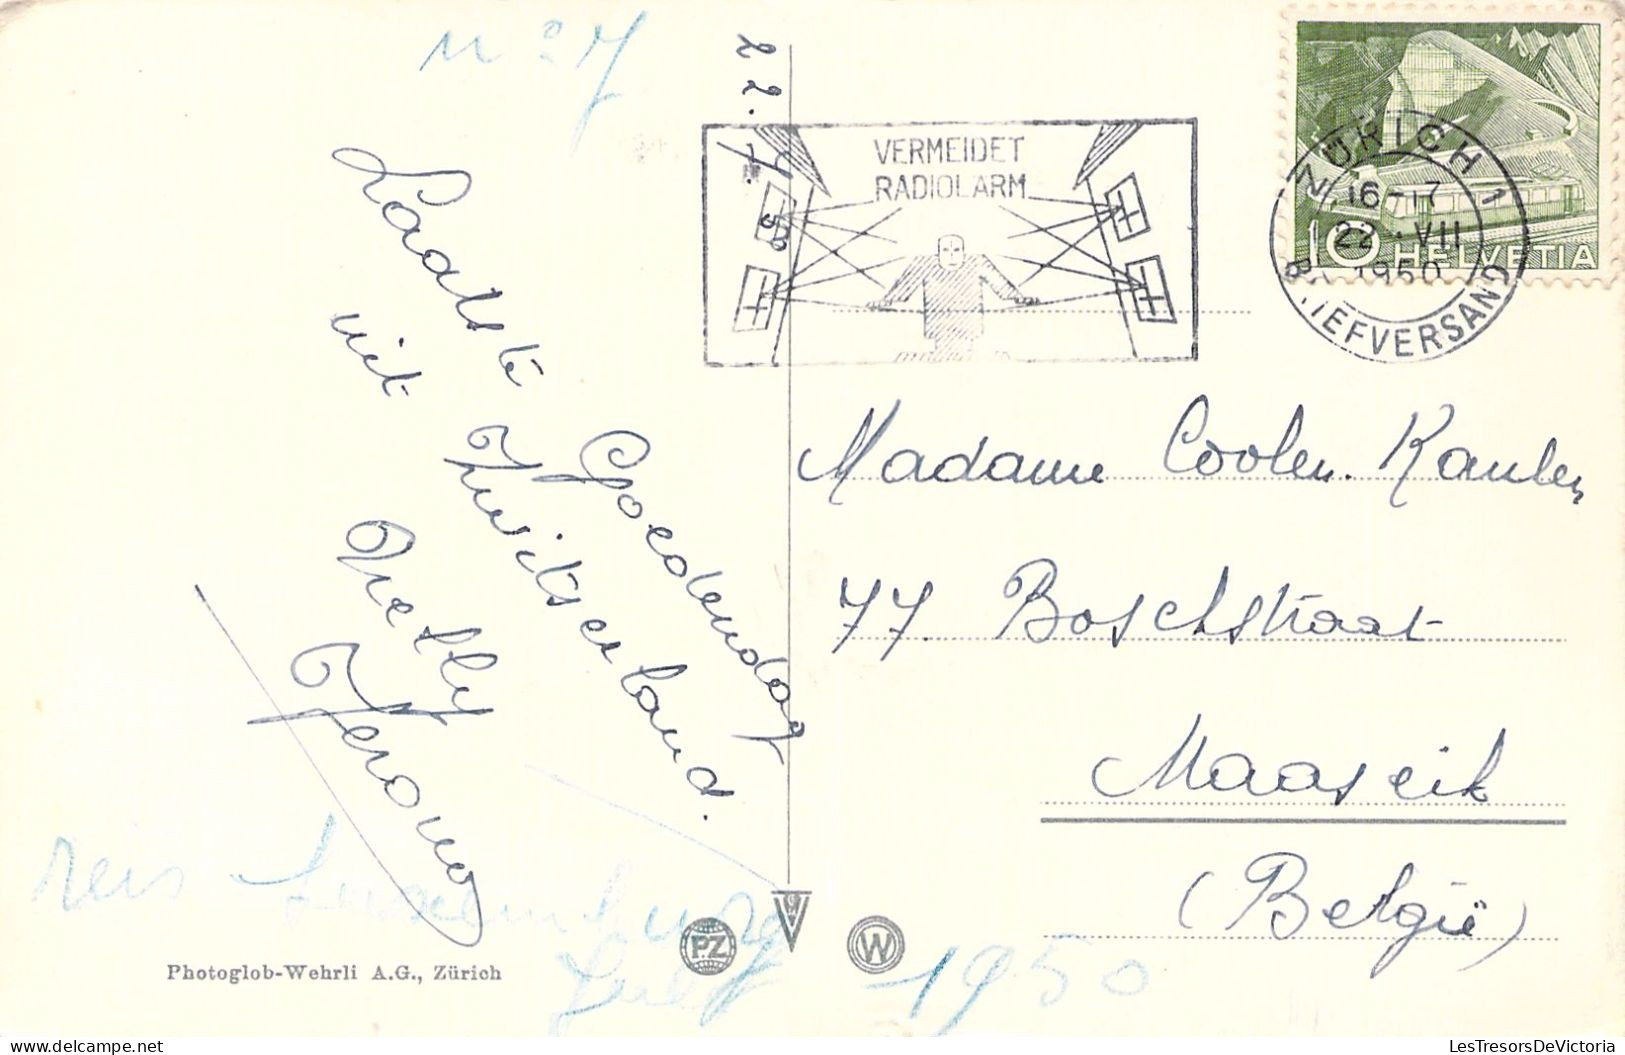 N° 7
22.7.50
Laatste Goedendag
uit Zwitserland.
Nelly
VERMEIDET
RADIOLÄRM
ZÜRICH 1
16-17
22. VII
1950
BRIEFVERSAND
10 HELVETIA
Madame Coolen. Kaulen
77. Boschstraat
Maaseik
(België)
reis Luxemburg
Juli 1950
PZ
W
Photoglob-Wehrli A.G., Zürich
LesTresorsDeVictoria